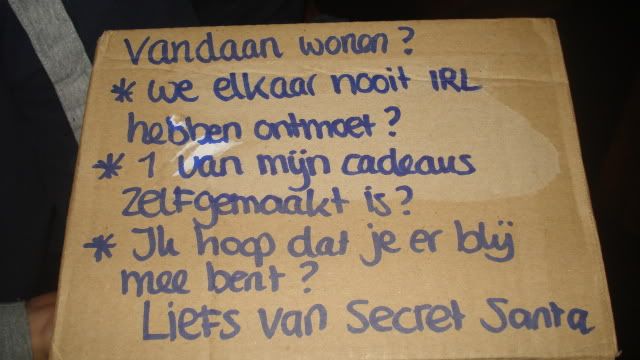 vandaan wonen?
* we elkaar nooit IRL
hebben ontmoet?
* 1 van mijn cadeaus
zelfgemaakt is?
* Ik hoop dat je er blij
mee bent?
Liefs van Secret Santa